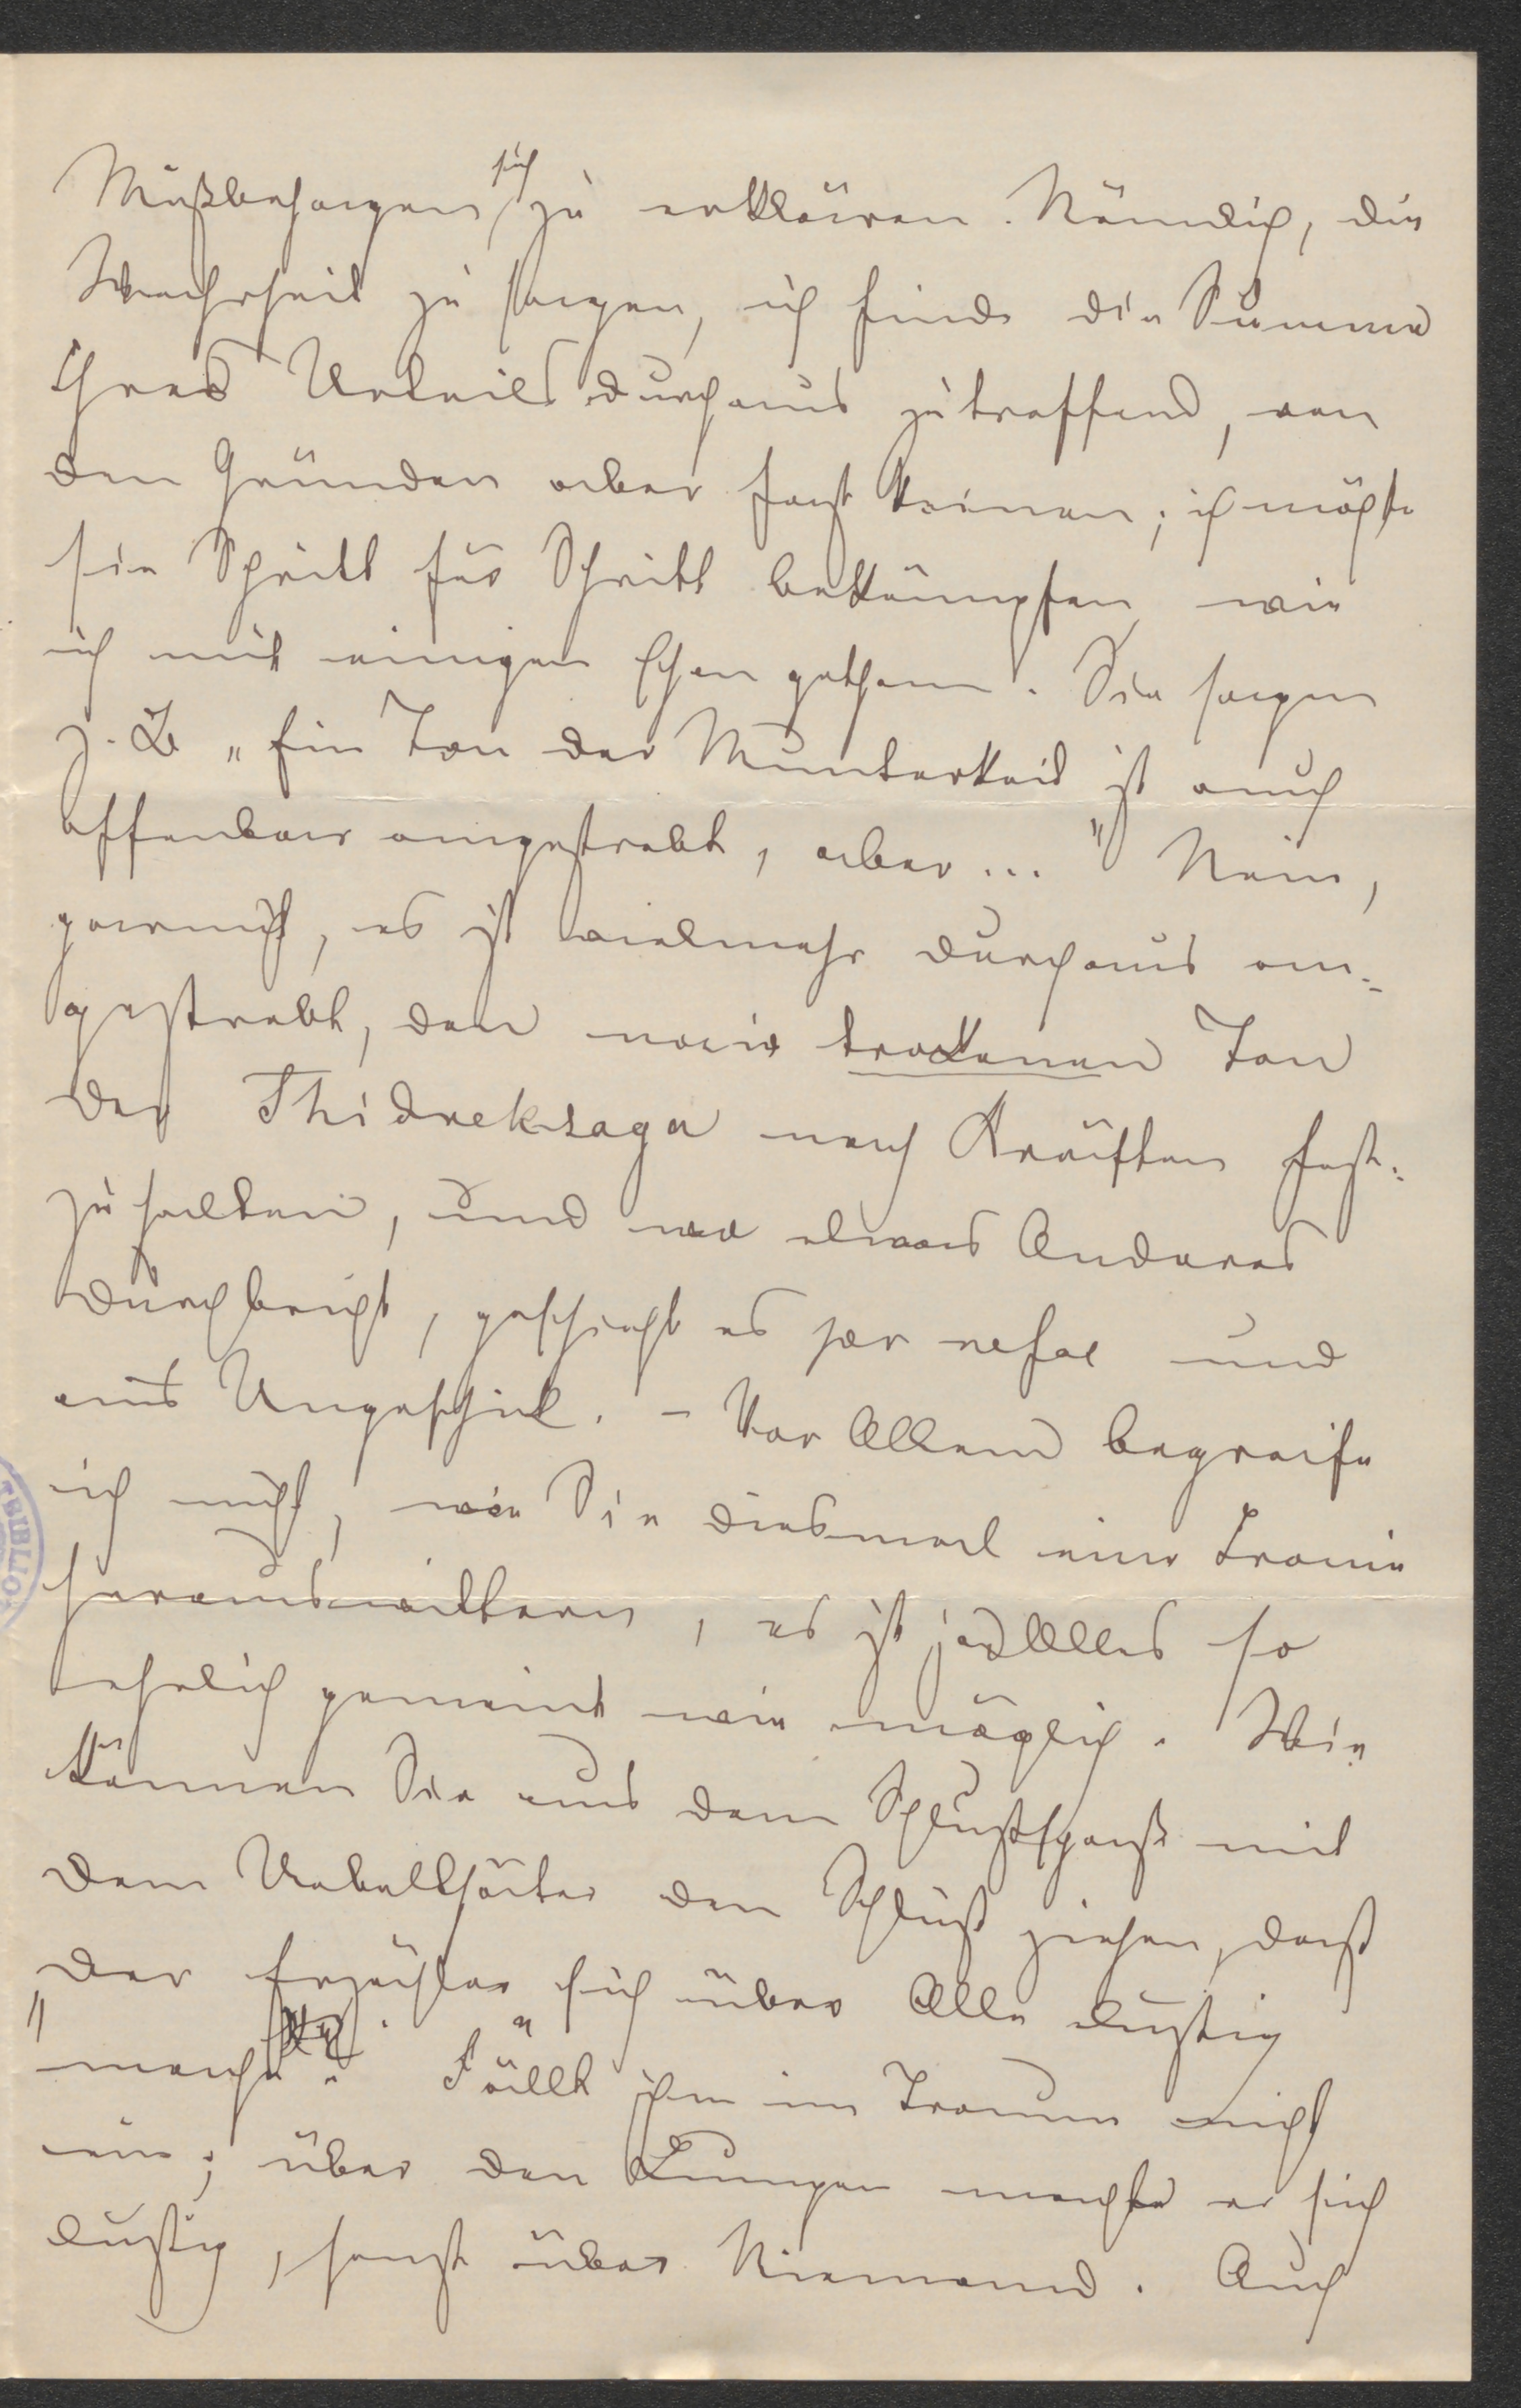 Mißbehagen sich zu erklären. Nämlich, die
Wahrheit zu sagen, ich finde die Summe
Ihres Urteils durchaus zutreffend, von
den Gründen aber fast keinen; ich möchte
sie Schritt für Schritt bekämpfen wie
ich mit einigen schon gethan. Sie sagen
z. B „Ein Ton der Munterkeit ist auch
offenbar angestrebt, aber..." Nein,
garnicht, es ist vielmehr durchaus an-
gestrebt, den naiv trockenen Ton
der Thidreksaga nach Kräften fest-
zuhalten, und wo etwas Anderes
durchbricht, geschieht es per nefas und
aus Ungeschick. - Vor Allem begreife
ich nicht, wie Sie diesmal eine Ironie
herauswittern, es ist ja Alles so
ehrlich gemeint wie möglich. Wie
können Sie aus dem Schlußspaß mit
dem Uebelthäter den Schluß ziehen, daß
der Erzähler „sich über Alle lustig
mache". Fällt ihm im Traum nicht
ein; über den Lumpen machte er sich
lustig, sonst über Niemand. Auch
TSBIBLIO